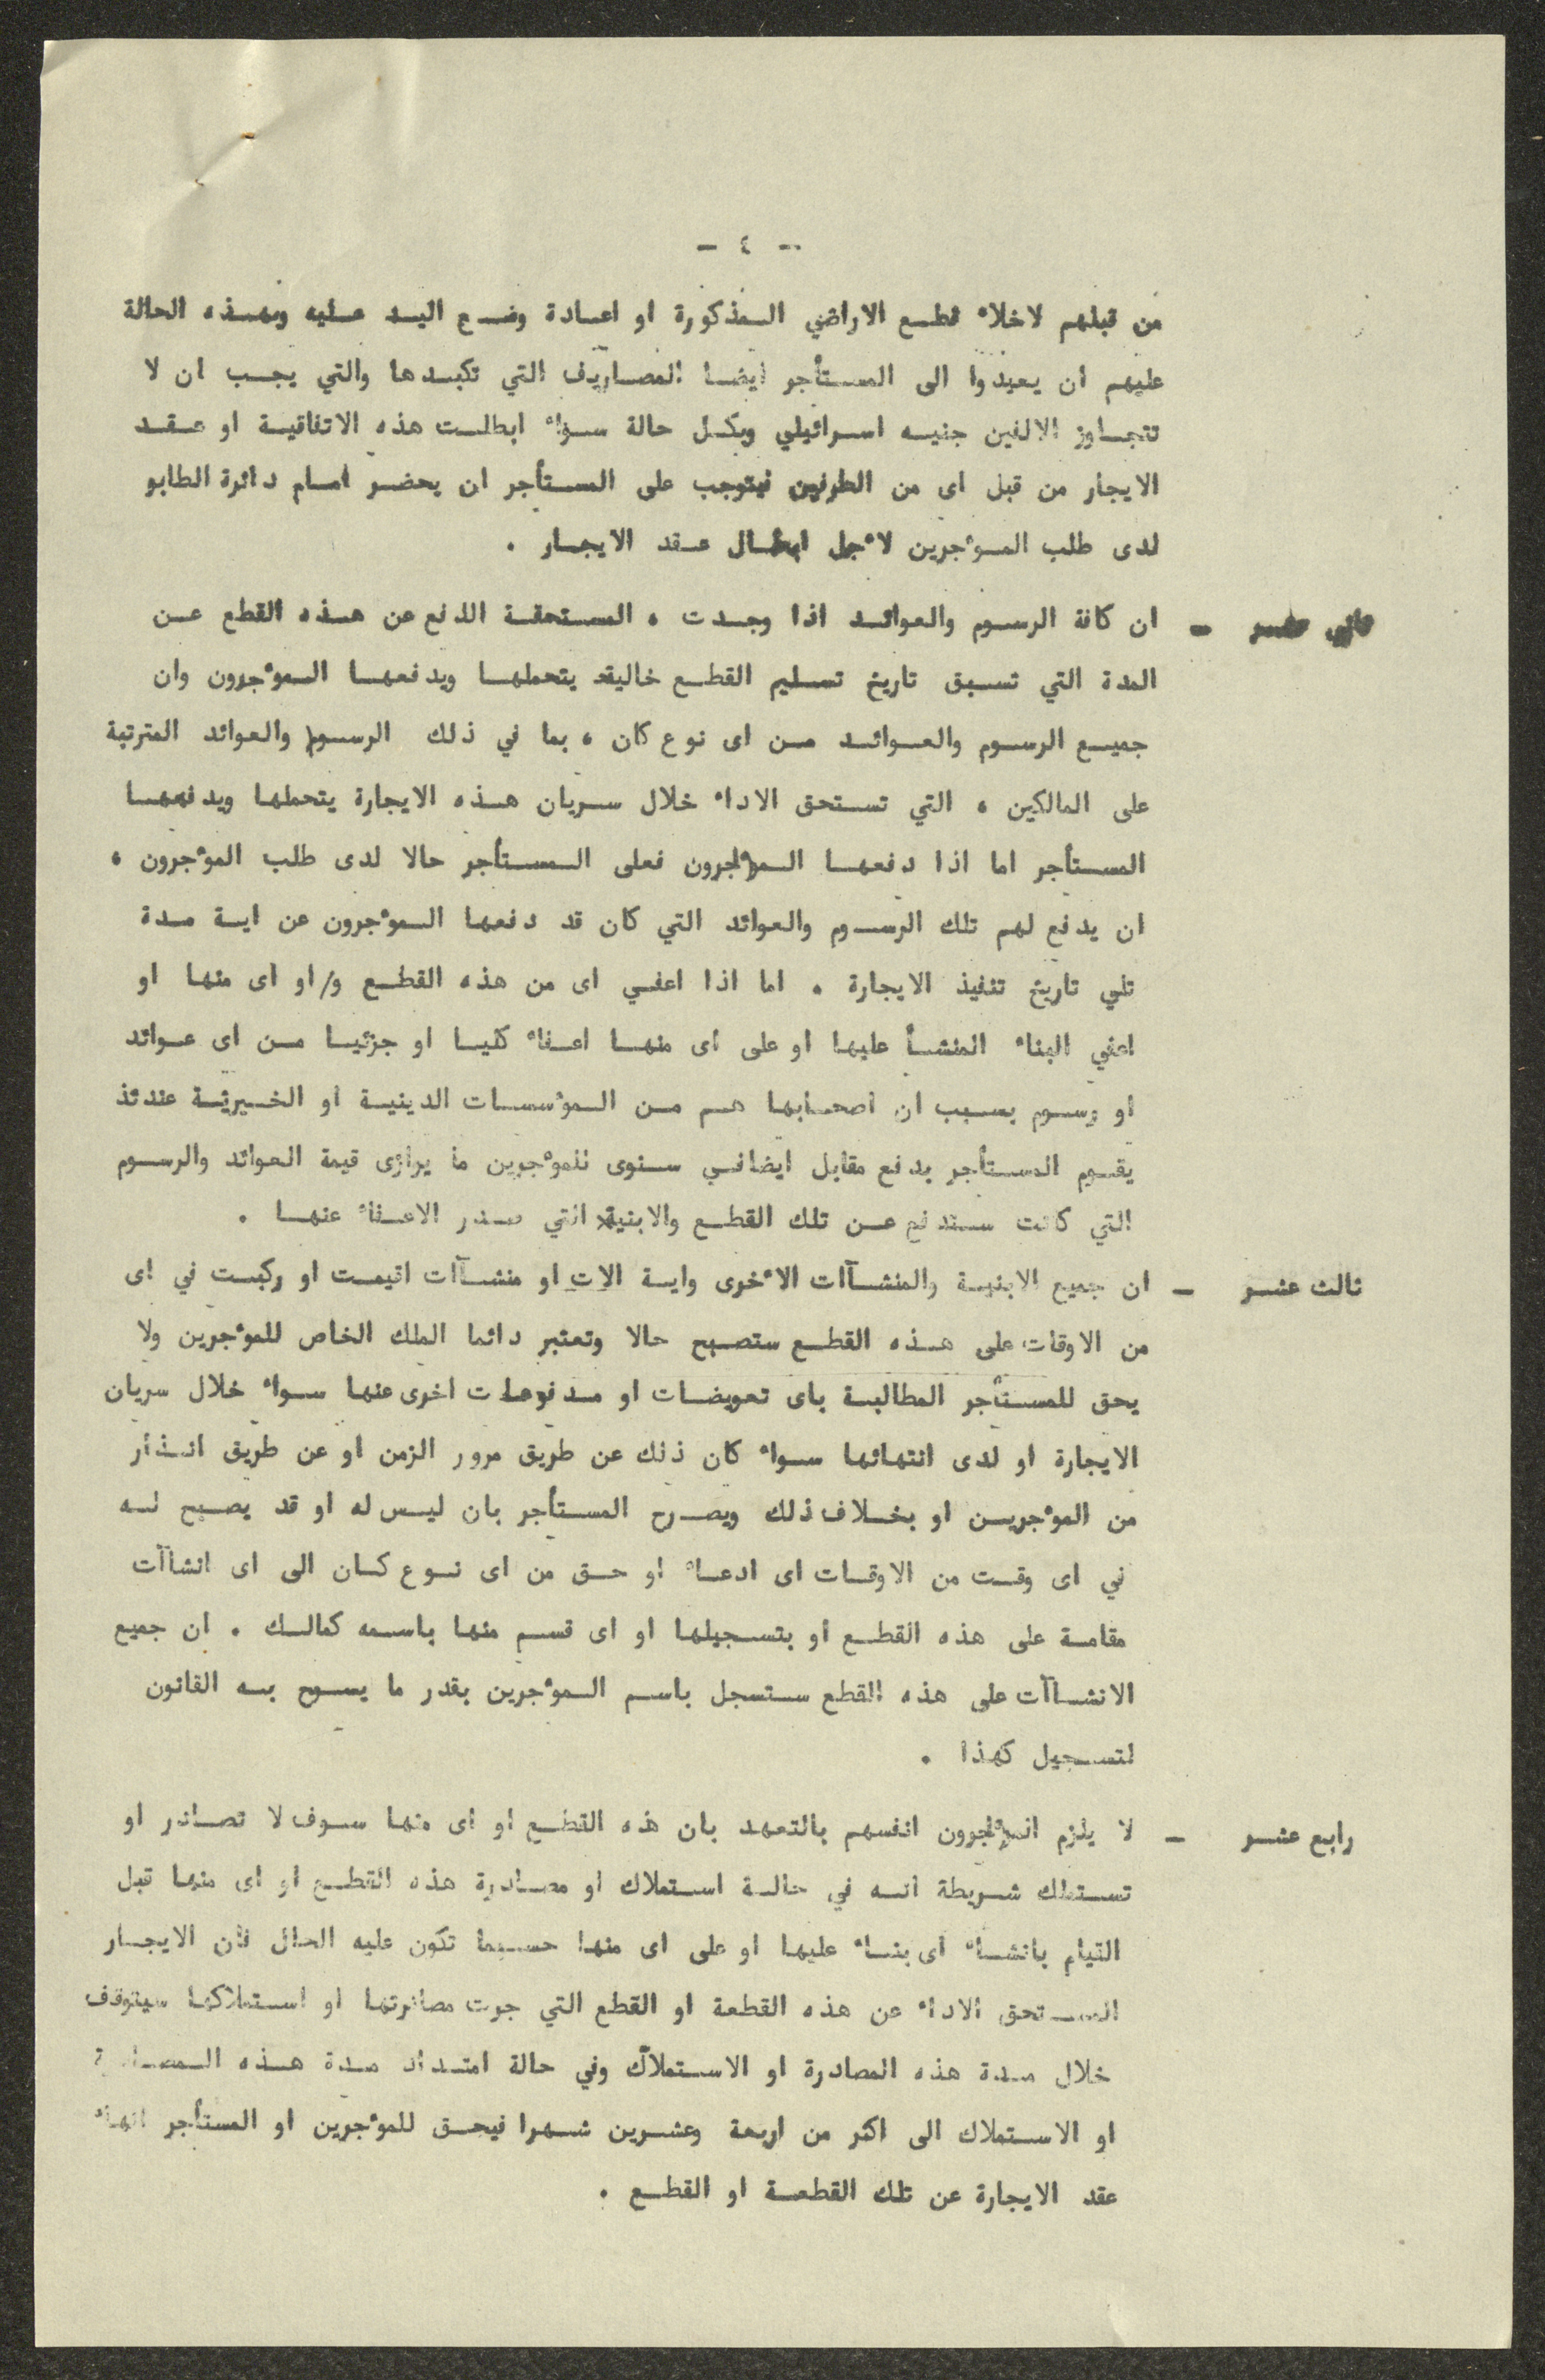 - ٤ -
من قبلهم لاخلاء قطع الاراضي المذكورة او اعادة وضع اليد عليه وبهذه الحالة
عليهم ان يعيدوا الى المستأجر ايضا المصاريف التي تكبدها والتي يجب ان لا
تتجاوز الالفين جنيه اسرائيلي وبكل حالة سواء ابطلت هذه الاتفاقية او عقد
الايجار من قبل اى من الطرفين فيتوجب على المستأجر ان يحضر امام دائرة الطابو
لدى طلب المؤجرين لأجل ابطال عقد الايجار .
ثاني عشر - ان كافة الرسوم والعوائد اذا وجدت ، المستحقة الدفع عن هذه القطع عن
المدة التي تسبق تاريخ تسليم القطع خالية يتحملها ويدفعها المؤجرون وان
جميع الرسوم والعوائد من اى نوع كان ، بما في ذلك الرسوم والعوائد المترتبة
على المالكين ، التي تستحق الاداء خلال سريان هذه الايجارة يتحملها ويدفعها
المستأجر اما اذا دفعها المؤجرون فعلى المستأجر حالا لدى طلب المؤجرون ،
ان يدفع لهم تلك الرسوم والعوائد التي كان قد دفعها المؤجرون عن اية مدة
تلي تاريخ تنفيذ الايجارة . اما اذا اعفي اى من هذه القطع و/او اى منها او
اعفي البناء المنشأ عليها او على اى منها اعفاء كليا او جزئيا من اى عوائد
او رسوم بسبب ان اصحابها هم من المؤسسات الدينية او الخيرية عندئذ
يقوم المستأجر بدفع مقابل ايضافي سنوى للمؤجرين ما يوازى قيمة العوائد والرسوم
التي كانت ستدفع عن تلك القطع والابنية التي صدر الاعفاء عنها .
ثالث عشر - ان جميع الابنية والمنشآات الأخرى واية الات او منشآات اقيمت او ركبت في اى
من الاوقات على هذه القطع ستصبح حالا وتعتبر دائما الملك الخاص للمؤجرين ولا
يحق للمستأجر المطالبة باى تعويضات او مدفوعات اخرى عنها سواء خلال سريان
الايجارة او لدى انتهائها سواء كان ذلك عن طريق مرور الزمن او عن طريق انذار
من المؤجرين او بخلاف ذلك ويصرح المستأجر بان ليس له او قد يصبح له
في اى وقت من الاوقات اى ادعاء او حق من اى نوع كان الى اى انشاآت
مقامة على هذه القطع او بتسجيلها او اى قسم منها باسمه كمالك . ان جميع
الانشاآت على هذه القطع ستسجل باسم المؤجرين بقدر ما يسمح به القانون
لتسجيل كهذا .
رابع عشر - لا يلزم المؤجرون انفسهم بالتعهد بان هذه القطع او اى منها سوف لا تصادر او
تستملك شريطة انه في حالة استملاك او مصادرة هذه القطع او اى منها قبل
القيام بانشاء اى بناء عليها او على اى منها حسبما تكون عليه الحال فان الايجار
المستحق الاداء عن هذه القطعة او القطع التي جرت مصادرتها او استملاكها سيتوقف
خلال مدة هذه المصادرة او الاستملاك وفي حالة امتداد مدة هذه المصادرة
او الاستملاك الى اكثر من اربعة وعشرين شهرا فيحق للمؤجرين او المستأجر انهاء
عقد الايجارة عن تلك القطعة او القطع .